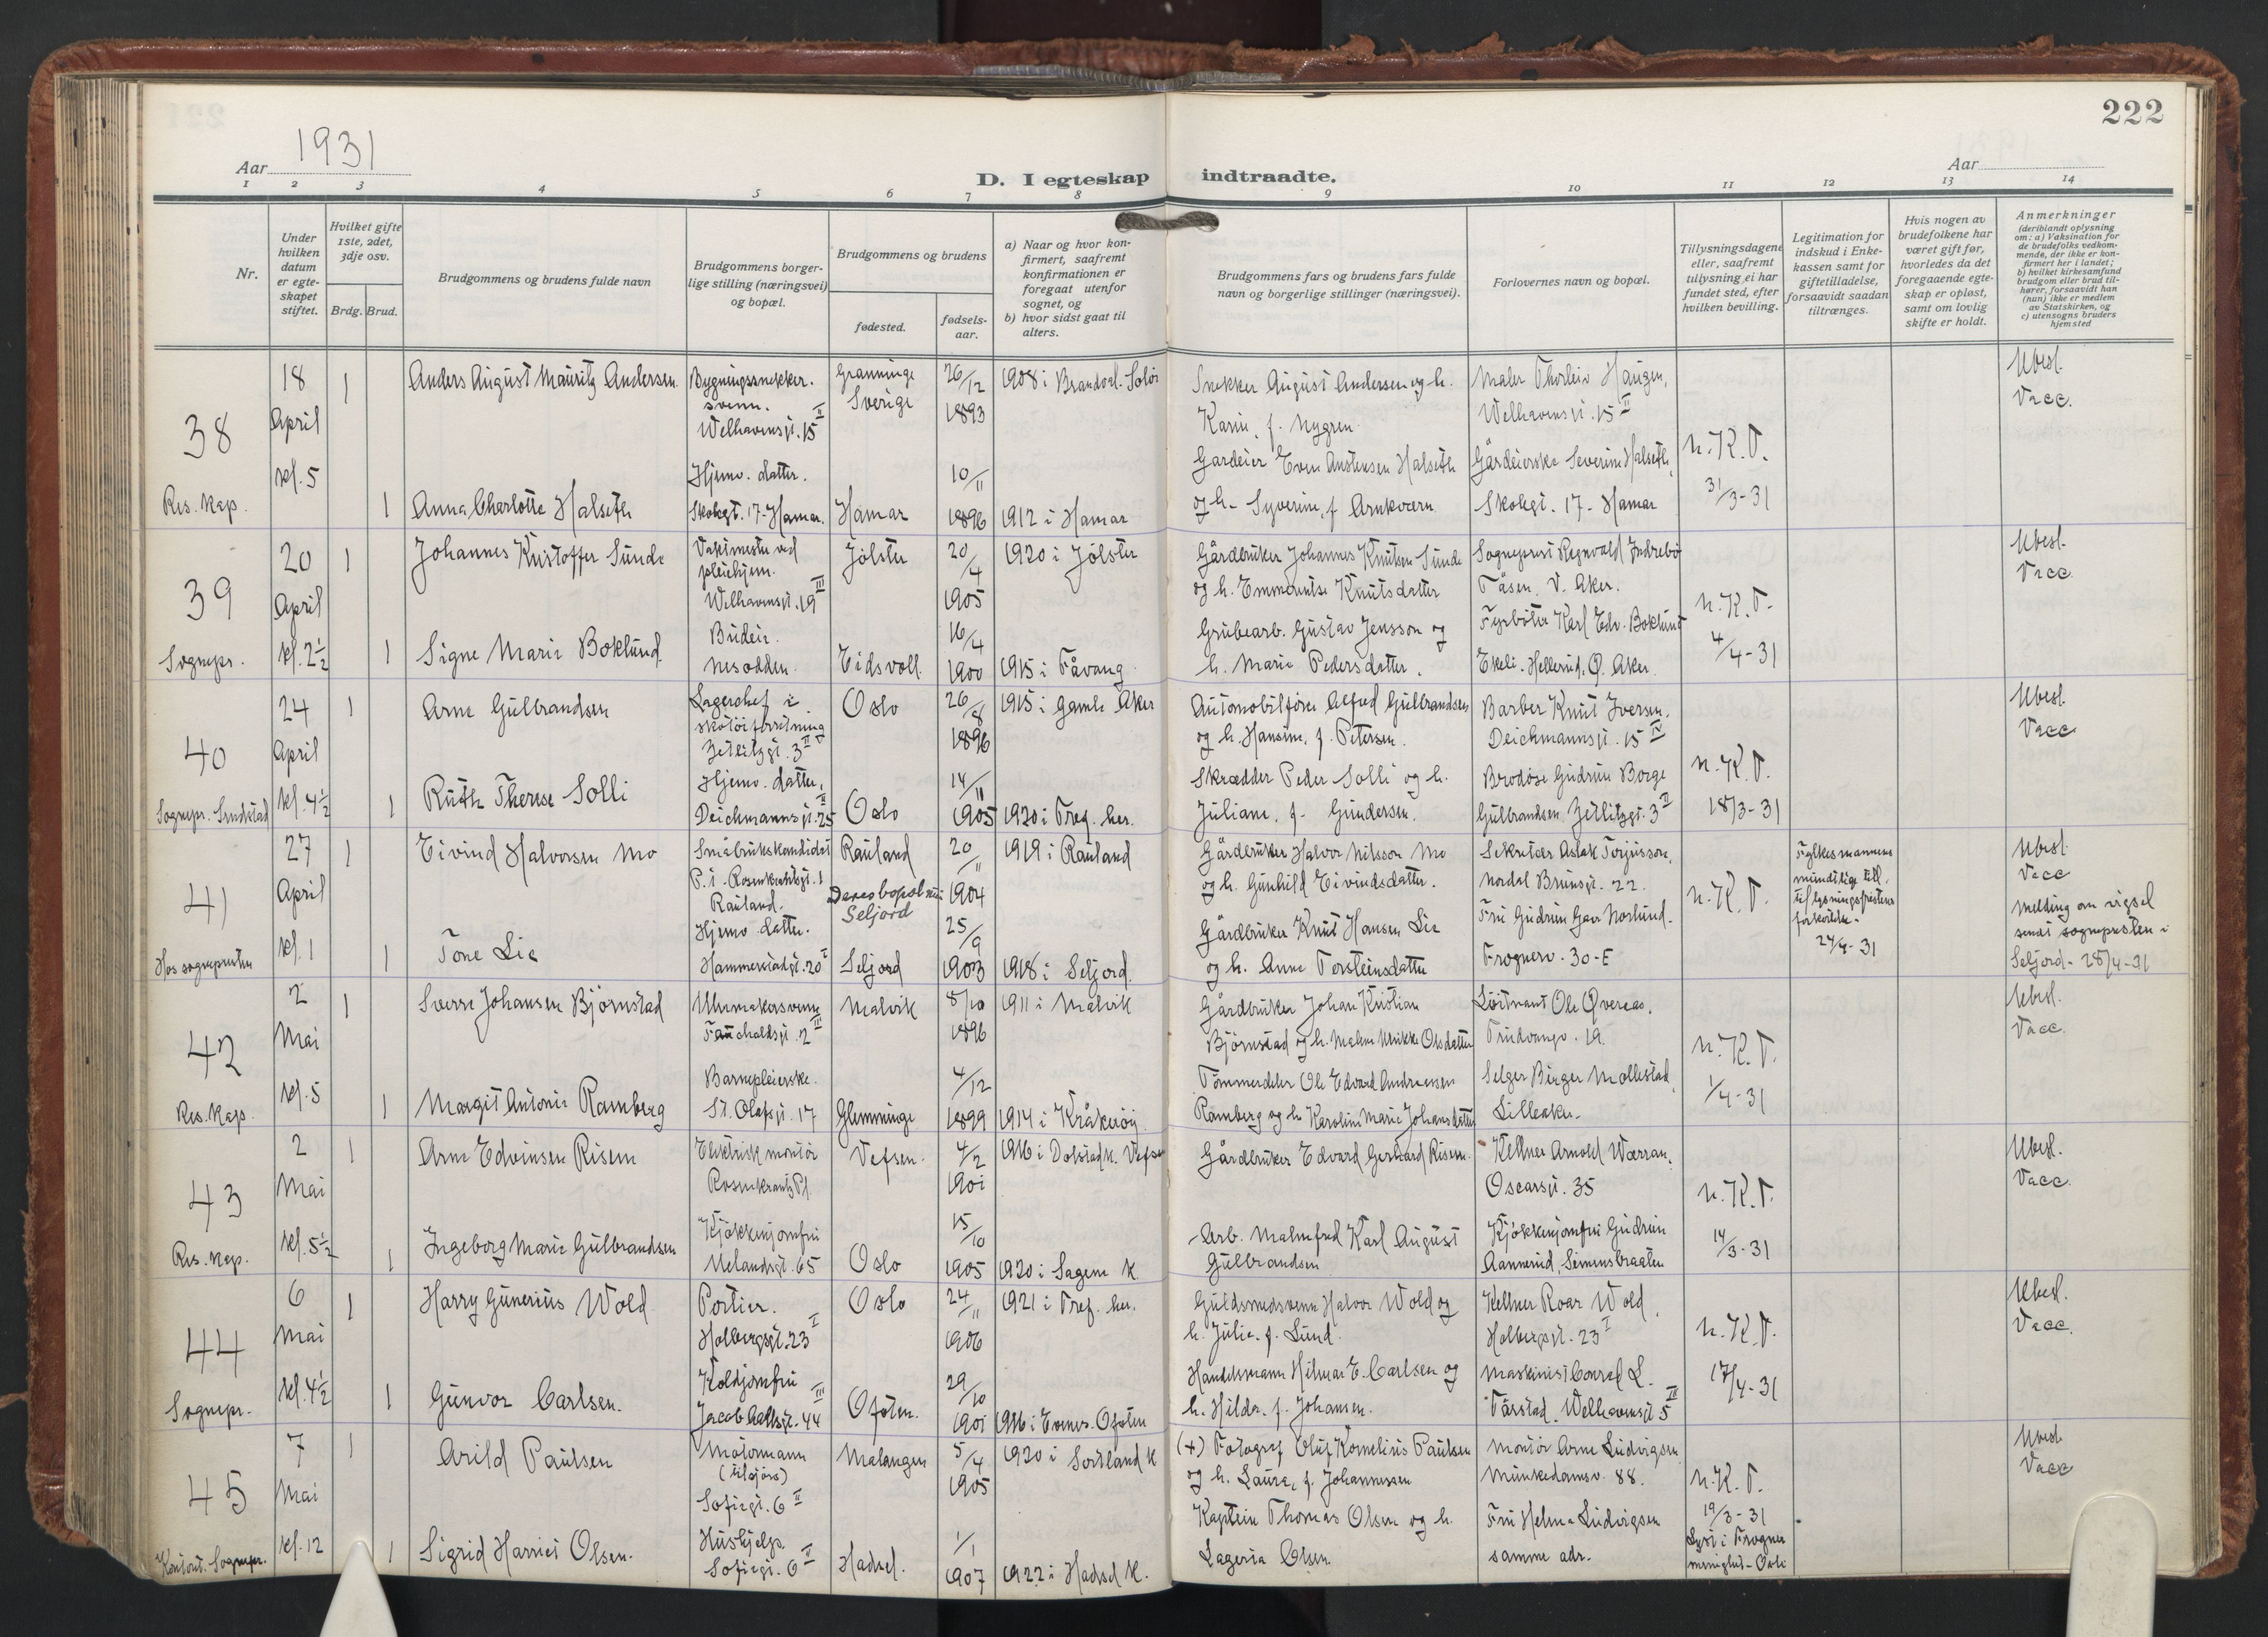 222
Aar 1931
D. I egteskap indtraadte.
Aar
1 2 3 4 5 6 7 8 9 10 11 12 13 14
Nr.
Under hvilken datum er egteskapet stiftet.
Hvilket gifte 1ste, 2det, 3dje osv.
Brdg. Brud.
Brudgommens og brudens fulde navn
Brudgommens borgerlige stilling (næringsvei) og bopæl.
Brudgommens og brudens
fødested.
fødselsaar.
a) Naar og hvor konfirmert, saafremt konfirmationen er foregaat utenfor sognet, og
b) hvor sidst gaat til alters.
Brudgommens fars og brudens fars fulde navn og borgerlige stillinger (næringsvei).
Forlovernes navn og bopæl.
Tillysningsdagene eller, saafremt tillysning ei har fundet sted, efter hvilken bevilling.
Legitimation for indskud i Enkekassen samt for giftetilladelse, forsaavidt saadan tiltrænges.
Hvis nogen av brudefolkene har været gift før, hvorledes da det foregaaende egteskap er opløst, samt om lovlig skifte er holdt.
Anmerkninger (deriblandt oplysning om: a) Vaksination for de brudefolks vedkommende, der ikke er konfirmert her i landet; b) hvilket kirkesamfund brudgom eller brud tilhører, forsaavidt han (hun) ikke er medlem av Statskirken, og c) utensogns bruders hjemsted
38
Res. kap.
18 April kl. 5
1
Anders August Mauritz Andersen
Bygningssnekkersvenn. Welhavensgt. 15 II
Granninge Sverige
26/12 1893
1908 i Brandval. Solør
Snekker August Andersen og h. Karin, f. Nygren.
Maler Thorleiv Haugen, Welhavensgt. 15 II
N.K.T. 31/3-31
Ubesl. Vacc.
1
Anna Charlotte Halseth
Hjemv. datter. Skolegt. 17. Hamar.
Hamar
10/11 1896
1912 i Hamar
Gardeier Even Austensen Halseth og h. Syverine, f. Arnkværn
Gårdeierske Severine Halseth, Skolegt. 17. Hamar
39
Sognepr.
20 April kl. 2½
1
Johannes Kristoffer Sunde
Vaktmester ved pleiehjem. Welhavensgt. 19 III
Jölster
20/4 1905
1920 i Jölster
Gårdbruker Johannes Knutsen Sunde og h. Emmerentse Knutsdatter
Sogneprest Regnvald Indrebö Tåsen, V. Aker.
N.K.T. 4/4-31
Ubesl. Vacc.
1
Signe Marie Boklund.
Budeie. Nesodden.
Eidsvoll.
16/4 1900
1915 i Fåvang.
Grubearb. Gustav Jensson og h. Marie Pedersdatter.
Fyrböter Karl Edv. Boklund Ekeli. Hellerud, Ø. Aker.
40
Sognepr. Sundstad
24 April kl. 4½
1
Arne Gulbrandsen
Lagerchef i skotöiforretning Zetlitzgt. 3 II
Oslo
26/8 1896
1915 i Gamle Aker
Automobilförer Alfred Gulbrandsen og h. Hansine, f. Petersen.
Barber Knut Iversen. Deichmannsgt. 15 IV
N.K.T. 18/3-31
Ubesl. Vacc
1
Ruth Therese Solli
Hjemv. datter, Deichmannsgt. 25 II
Oslo
14/11 1905
1920 i Tref. her.
Skrædder Peder Solli og h. Juliane, f. Gundersen.
Brodöse Gudrun Borge Gulbrandsen Zetlitzgt. 3 II
41
Hos sognepresten
27 April kl. 1
1
Eivind Halvorsen Mo
Småbrukskandidat P.t. Rosenkrantzgt. 1 Rauland.
Rauland
Deres bopel blir Seljord
20/11 1904
1919 i Rauland
Gårdbruker Halvor Nilsson Mo og h. Gunhild Eivindsdatter.
Sekretær Aslak Torjusson, Nordal Brunsgt. 22.
N.K.T.
Fylkesmannens mundtlige till. til lysningsfristens forkortelse. 24/4-31
Ubesl. Vacc Melding om vigsel sendt sognepresten i Seljord - 28/4-31
1
Tone Lie
Hjemv. datter. Hammerstadgt. 20 I
Seljord
25/9 1903
1918 i Seljord.
Gårdbruker Knut Hansen Lie og h. Anne Torsteinsdatter
Fru Gudrun Norlund. Frognerv. 30-E
42
Res. kap.
2 Mai kl. 5
1
Sverre Johansen Björnstad
Uhrmakersvenn Fauchaldsgt. 2 III
Malvik
8/10 1896
1911 i Malvik
Gårdbruker Johan Kristian Björnstad og h. Malene Ulrikke Olsdatter
Löitnant Ole Øvereas. Trudvangv. 19.
N.K.T. 1/4-31
Ubesl. Vacc.
1
Margit Antonie Ramberg
Barnepleierske. St. Olafsgt. 17
Glemminge
4/12 1899
1914 i Kråkeröy.
Tömmerdeler Ole Edvard Andreassen Ramberg og h. Karoline Marie Johansdatter
Selger Birger Mollestad, Lilleaker.
43
Res. kap.
2 Mai kl. 5½
1
Arne Edvinsen Risem
Elektrisk montör Rosenkrantzgt.
Vefsen.
4/2 1901
1916 i Dolstad k. Vefsen
Gårdbruker Edvard Gerhard Risem.
Kellner Arnold Wærran. Oscarsgt. 35
N.K.T. 14/3-31
Ubesl. Vacc.
1
Ingeborg Marie Gulbrandsen
Kjökkenjomfru Uelandsgt. 65
Oslo
15/10 1905
1920 i Sagene k.
Arb. Malmfred Karl August Gulbrandsen
Kjökkenjomfru Gudrun Aannerud, Simensbraaten
44
Sognepr.
6 Mai kl. 4½
1
Harry Gunerius Wold
Portier. Holbergsgt. 23 I
Oslo
24/11 1906
1921 i Tref. her.
Guldsmedsvenn Halvor Wold og h. Julie, f. Lund.
Kellner Roar Wold, Holbergsgt. 23 I
N.K.T. 17/4-31
Ubesl. Vacc.
1
Gunvor Carlsen.
Koldjomfru Jacob Aallsgt. 44 III
Ofoten.
29/10 1901
1916 i Evenes. Ofoten
Handelsmann Hilmar E. Carlsen og h. Hilda, f. Johansen.
Maskinist Conrad L. Tårstad. Welhavensgt 5 III
45
Kontoret. Sognepr.
7 Mai kl. 12
1
Arild Paulsen
Motormann (tilsjøss) Sofiegt. 6 II
Malangen
5/4 1905
1920 i Sortland k
(+) Fotograf Oluf Kornelius Paulsen og h. Laura, f. Johannessen
Montör Arne Ludvigsen Munkedamsv. 88.
N.K.T. 19/3-31 Lyst i Frogner menighet - Oslo
Ubesl. Vacc
1
Sigrid Harriet Olsen.
Hushjelp. Sofiegt. 6 II
Hadsel.
1/1 1907
1922 i Hadsel k.
Kaptein Thomas Olsen og h. Lageria Olsen.
Fru Helma Ludvigsen samme adr.